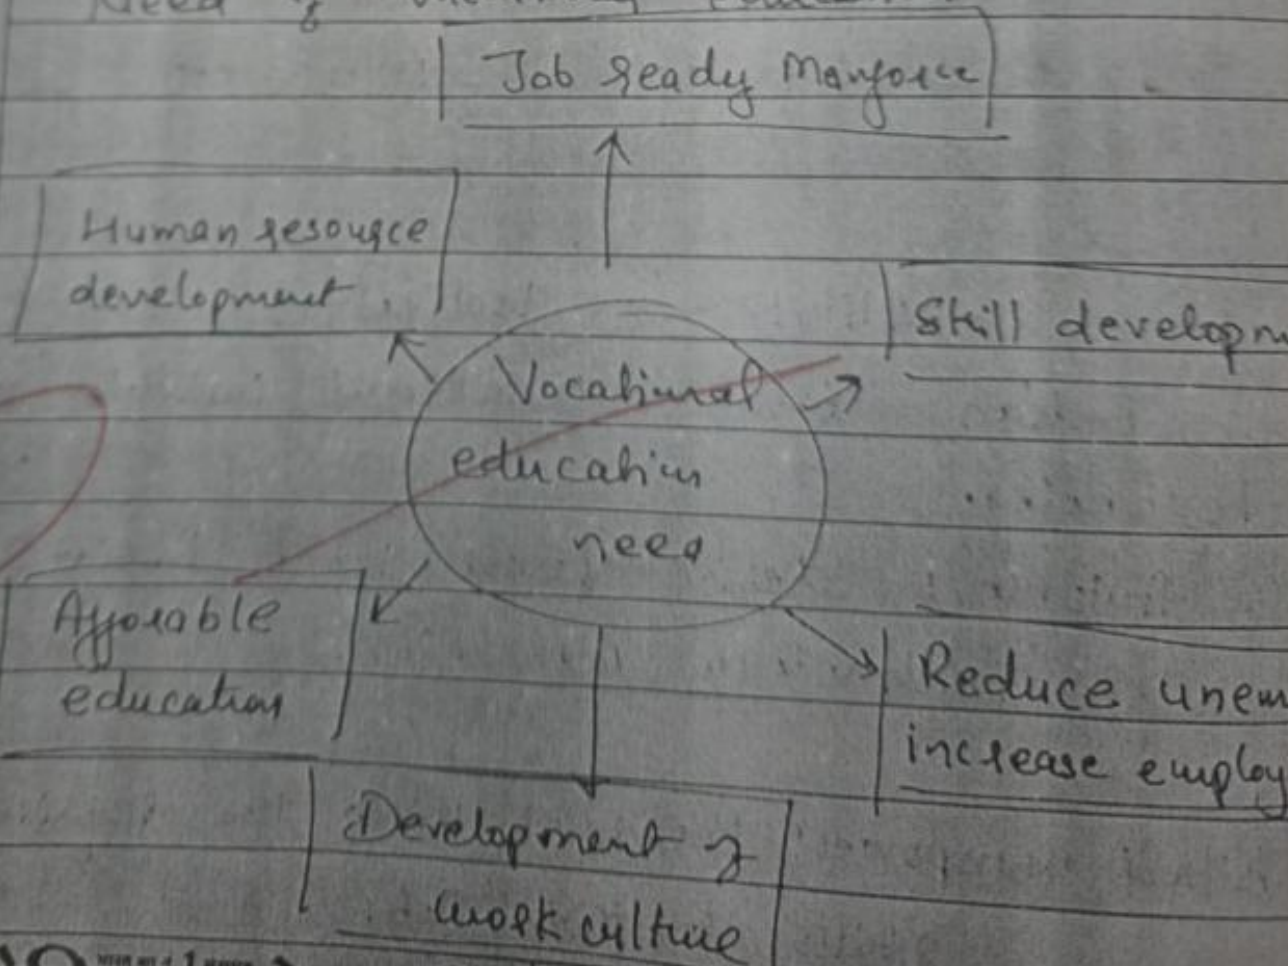 Need of
Job ready Manforce
Human resource
development
Skill developm
Vocational
education
need
Afforable
education
Reduce unem
increase employ
Development of
work culture